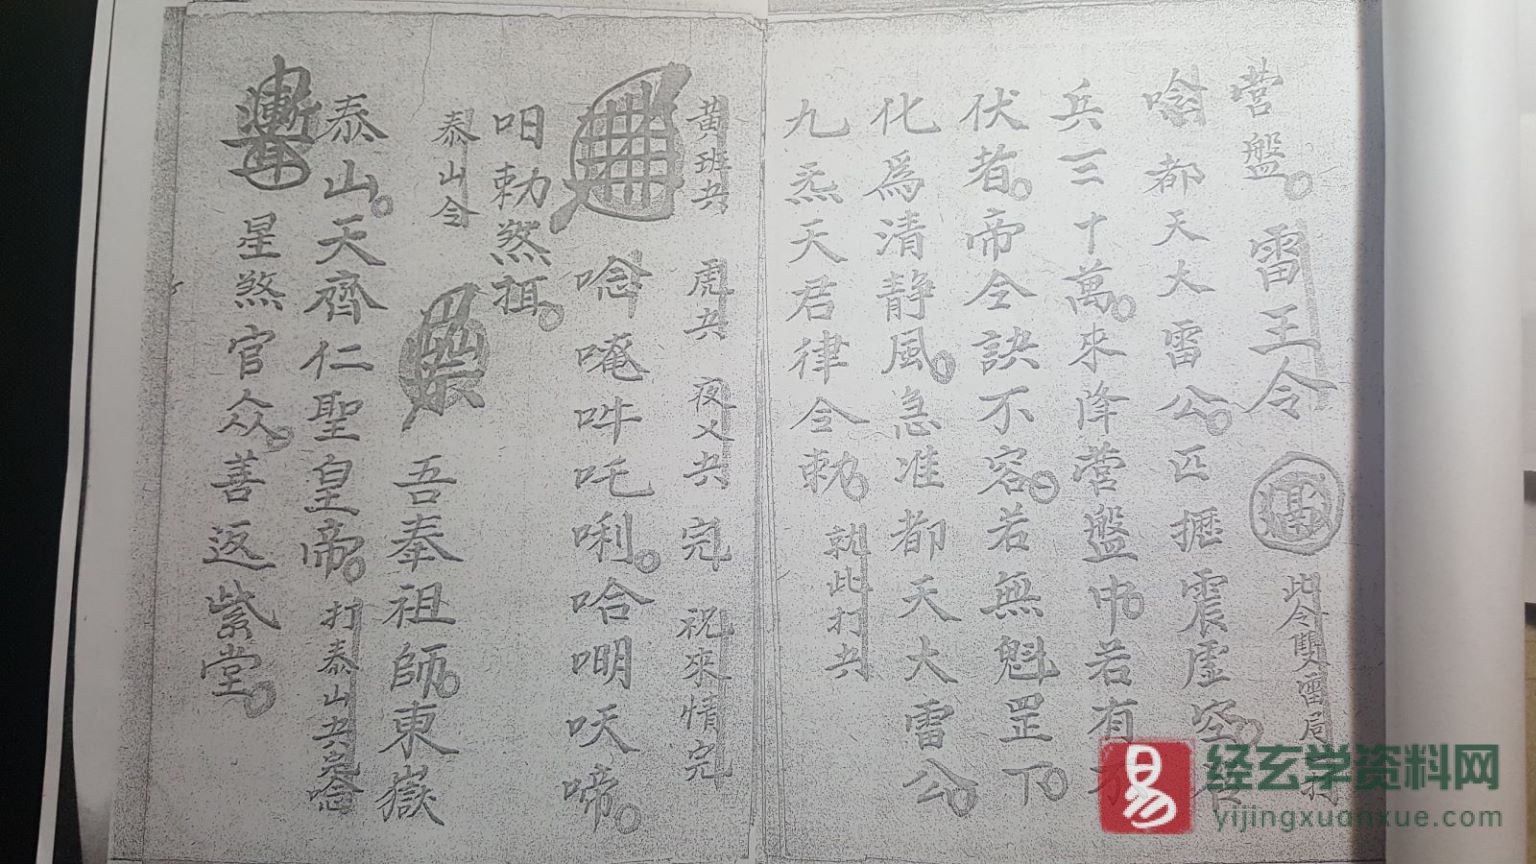 營盤 雷王令 此令雙雷局 打
噏都天大雷公匹攊震虛空
兵三十萬來降營盤中若有不
伏者帝令訣不容若無魁罡下
化為清静風急准都天大雷公
九炁天君律令勅 就此打兵
黃班兵 虎兵 夜乂兵 完 祝來情完
唸唵吽吒唎哈嘲吷啼
呾勅煞挕
泰山令 吾奉祖師東嶽
泰山天齊仁聖皇帝 打泰山兵完念
星煞官众善返紫堂
经玄学资料网
yijingxuanxue.com
易